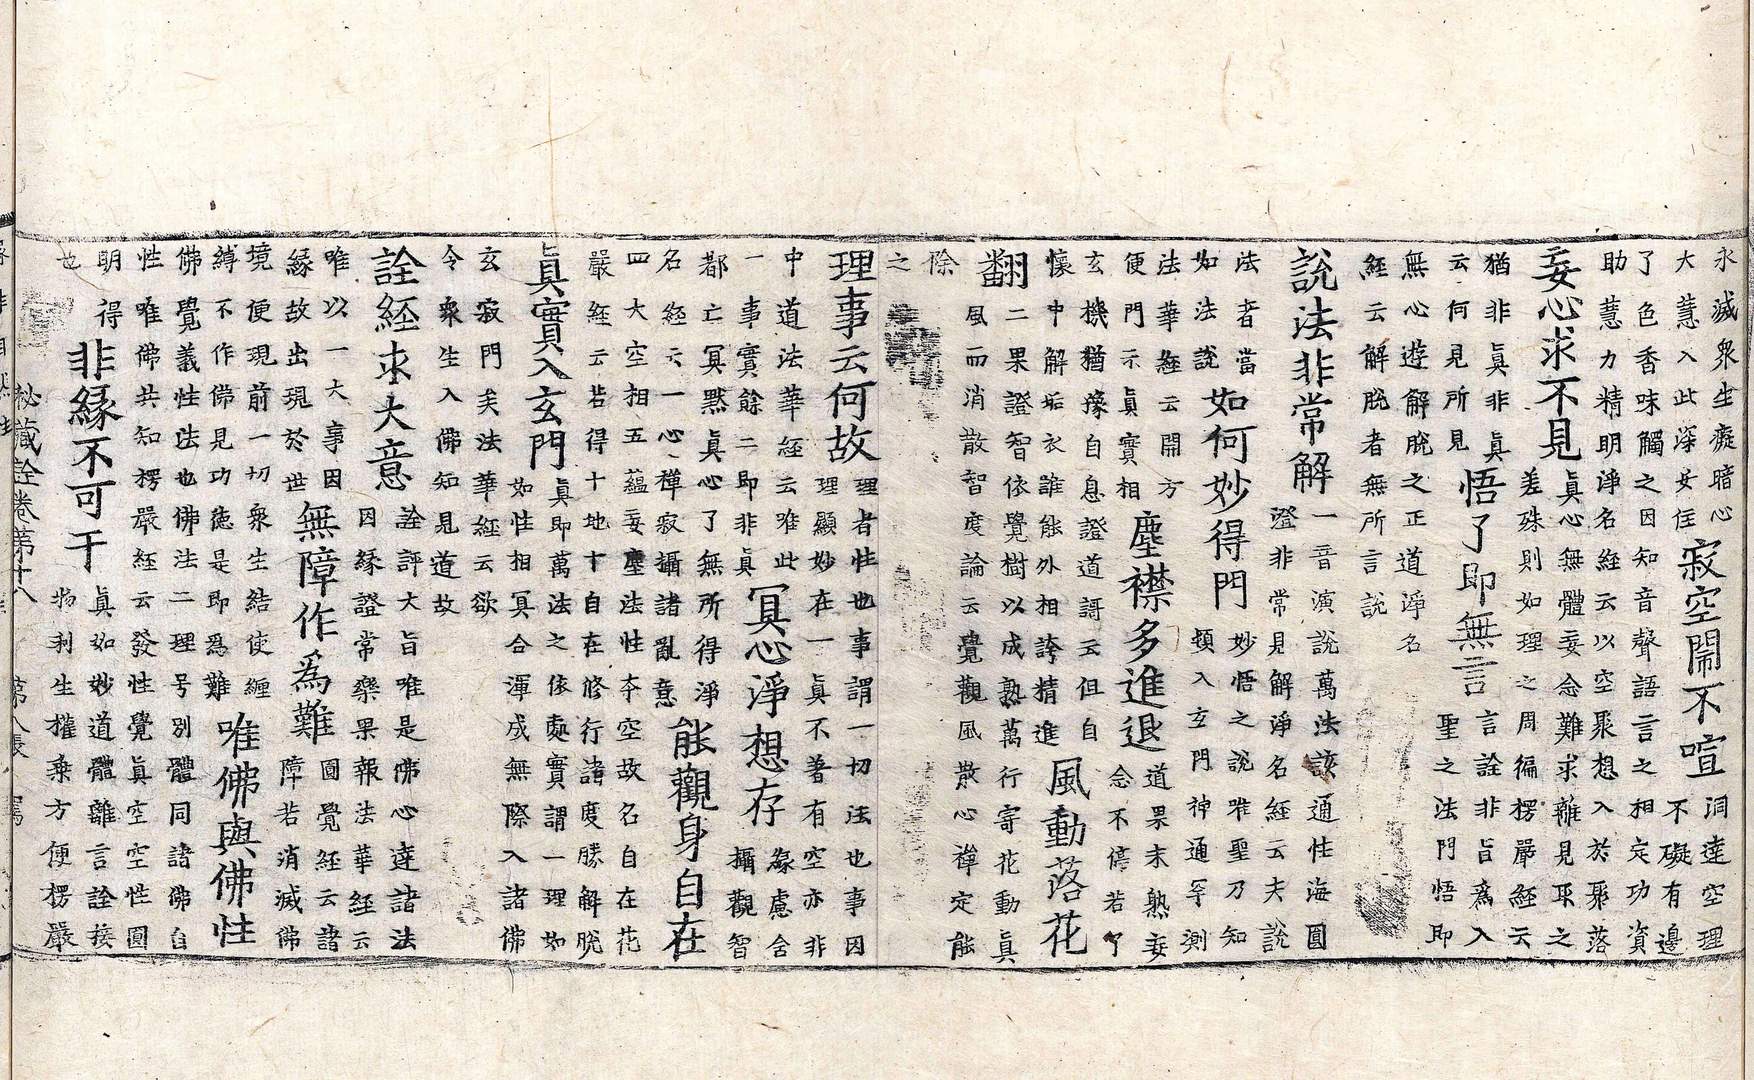 永滅衆生癡暗心
大慧入此深妄住
寂空閙不喧
洞達空理
不礙有邊
了色香味觸之因知音聲語言之相定功資
助慧力精明淨名經云以空聚想入於聚落
妄心求不見
眞心無體妄念難求離見取之
差殊則如理之周徧楞嚴經云
猶非眞非眞
云何見所見
悟了即無言
言詮非旨爲入
聖之法門悟即
無心遊解脫之正道淨名
經云解脫者無所言說
說法非常解
一音演說萬法該通性海圓
澄非常見解淨名經云夫說
法者當
如法說
如何妙得門
妙悟之說唯聖乃知
頓入玄門神通罕測
法華經云開方
便門示眞實相
塵襟多進退
道果未熟妄
念不停若了
玄機猶豫自息證道謌云但自
懷中解垢衣誰能外相誇精進
風動落花
翻
二果證智依覺樹以成熟萬行寄花動眞
風而消散智度論云覺觀風散心禪定能
除
之
理事云何故
理者性也事謂一切法也事因
理顯妙在一眞不著有空亦非
中道法華經云唯此
一事實餘二即非眞
冥心淨想存
緣慮含
攝觀智
都亡冥默眞心了無所得淨
名經云一心禪寂攝諸亂意
能觀身自在
四大空相五蘊妄塵法性夲空故名自在花
嚴經云若得十地十自在修行諸度勝解脫
眞實入玄門
眞即萬法之依處實謂一理如
如性相冥合渾成無際入諸佛
玄寂門矣法華經云欲
令衆生入佛知見道故
詮經求大意
詮評大旨唯是佛心達諸法
因緣證常樂果報法華經云
唯以一大事因
緣故出現於世
無障作爲難
圓覺經云諸
障若消滅佛
境便現前一切衆生結使纏
縛不作佛見功德是即爲難
唯佛與佛性
佛覺義性法也佛法二理号別體同諸佛自
性唯佛共知楞嚴經云發性覺眞空空性圓
明得
也
非緣不可干
眞如妙道體離言詮接
物利生權乘方便楞嚴
秘藏詮卷第十八 第八張